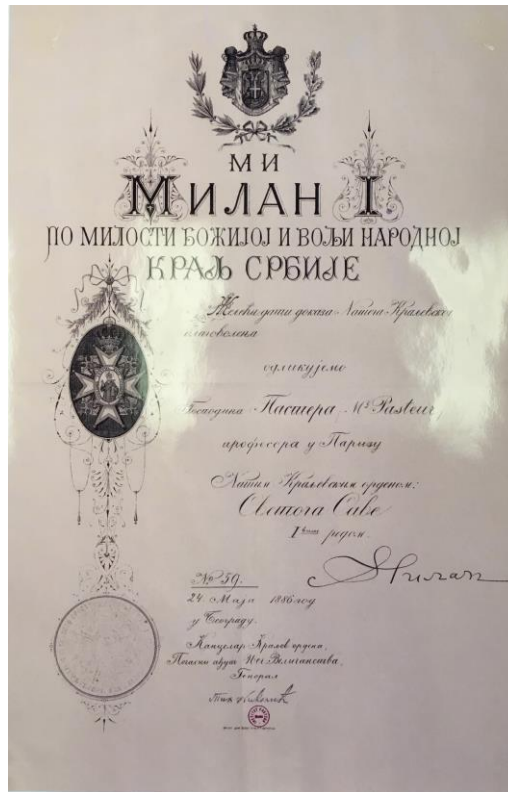 МИ
МИЛАН I
ПО МИЛОСТИ БОЖИЈОЈ И ВОЉИ НАРОДНОЈ
КРАЉ СРБИЈЕ
Желећи дати доказа Нашега Краљевског
благовољења
одликујемо
Господина Пастера, Mr Pasteur
професора у Паризу
Нашим Краљевским орденом:
Светога Саве
I реда.
№ 59.
Милан
24. Маја 1886 год
у Београду.
Канцелар Краљев. ордена,
Почасни ађут. Његов. Величанства,
Генерал